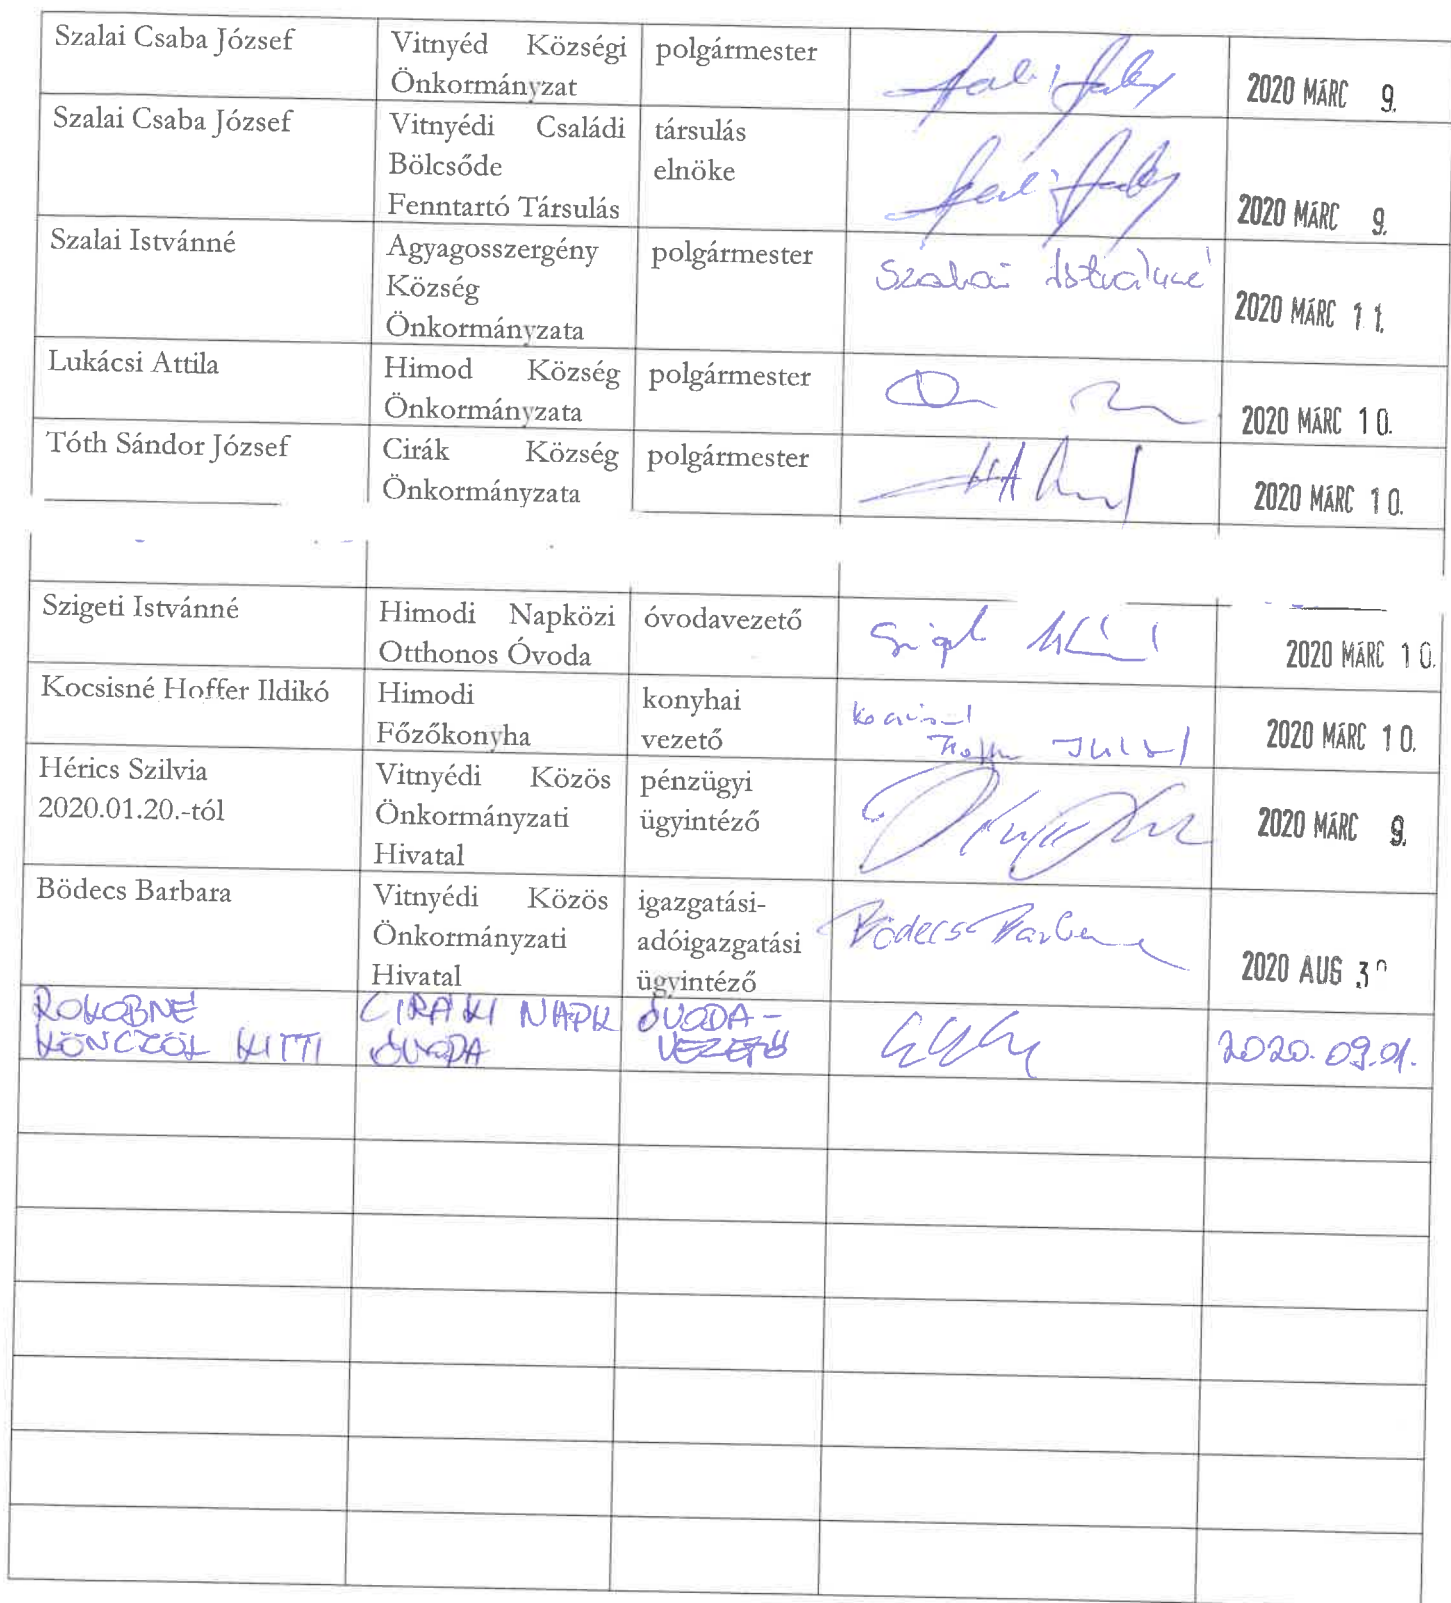 Szalai Csaba József
Vitnyéd Községi
Önkormányzat
polgármester
2020 MÁRC 9.
Szalai Csaba József
Vitnyédi Családi
Bölcsőde
Fenntartó Társulás
társulás
elnöke
2020 MÁRC 9.
Szalai Istvánné
Agyagosszergény
Község
Önkormányzata
polgármester
Szalai Istvánné
2020 MÁRC 11.
Lukácsi Attila
Himod Község
Önkormányzata
polgármester
2020 MÁRC 10.
Tóth Sándor József
Cirák Község
Önkormányzata
polgármester
2020 MÁRC 10.
Szigeti Istvánné
Himodi Napközi
Otthonos Óvoda
óvodavezető
2020 MÁRC 10.
Kocsisné Hoffer Ildikó
Himodi
Főzőkonyha
konyhai
vezető
2020 MÁRC 10.
Hérics Szilvia
2020.01.20.-tól
Vitnyédi Közös
Önkormányzati
Hivatal
pénzügyi
ügyintéző
2020 MÁRC 9.
Bödecs Barbara
Vitnyédi Közös
Önkormányzati
Hivatal
igazgatási-
adóigazgatási
ügyintéző
Bödecs Barbara
2020 AUG 3
ROKOBNÉ
KÖNCZÖL KITTI
CIRÁKI NAPK
ÓVODA
ÓVODA-
VEZETŐ
2020.09.01.